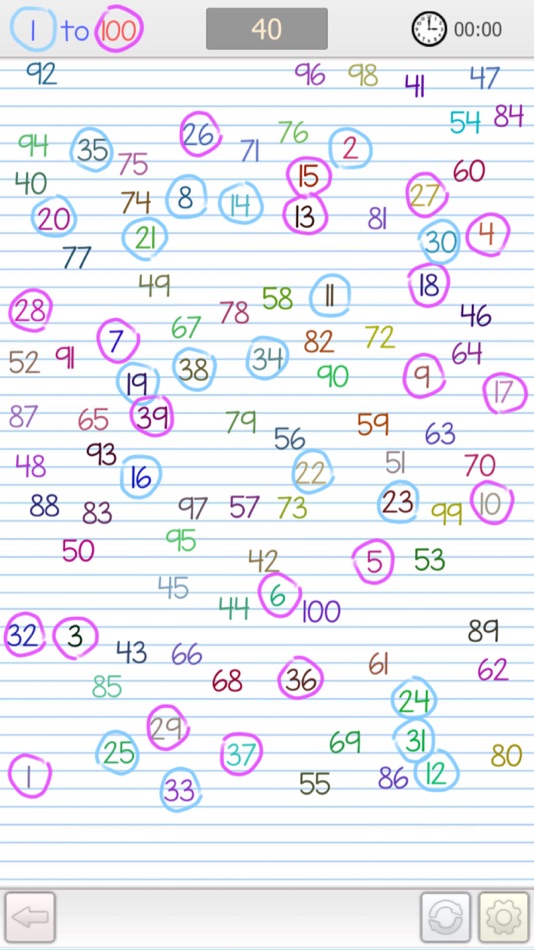 1 to 100 40 00:00
92 96 98 41 47
54 84
94 35 75 26 71 76 2
40 15 60
20 74 8 14 13 81 27
21 30 4
77
49 11 18
28 78 58 46
7 67 82 72
52 91 38 34 90 9 64
19 17
87 65 39 79 59
93 56 63
48 16 22 51 70
88 83 97 57 73 23 99 10
50 95
42 5 53
45 44 6 100
32 3 89
43 66 61 62
85 68 36 24
29
25 37 69 31 80
1 33 55 86 12